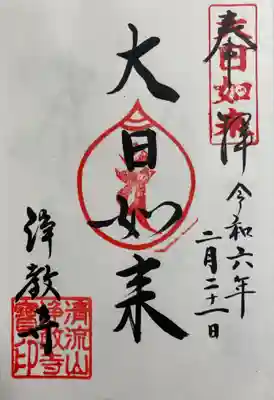 奉拝
令和六年
二月二十一日
大日如来
浄教寺
清流山
浄教寺
寶印